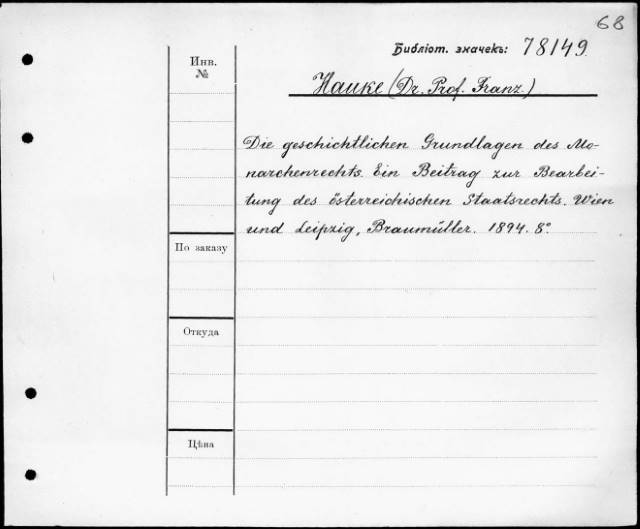 68
Библіот. значекъ: 78149.
Инв.
№
Hauke (Dr. Prof. Franz)
Die geschichtlichen Grundlagen des Mo-
narchenrechts. Ein Beitrag zur Bearbei-
tung des österreichischen Staatsrechts. Wien
und Leipzig, Braumüller. 1894. 8°.
По заказу
Откуда
Цѣна